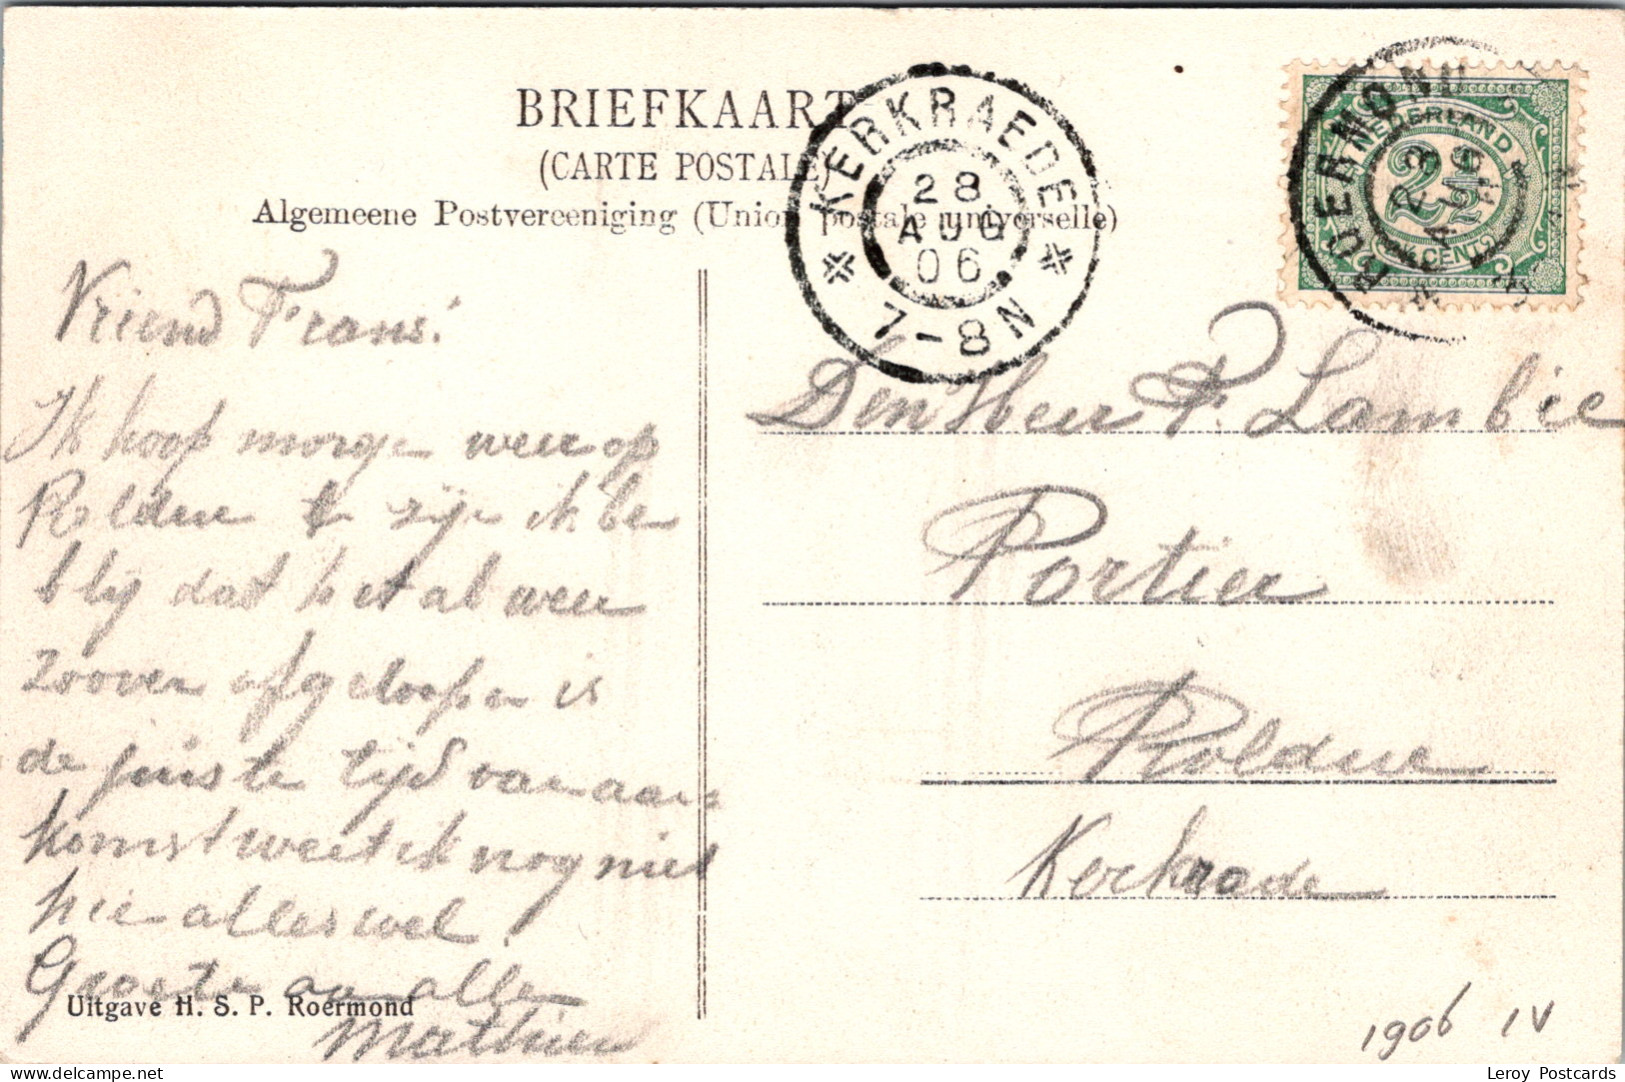 BRIEFKAART
(CARTE POSTALE)
Algemeene Postvereeniging (Union postale universelle)
KERKRAEDE
28
AUG
06
7-8N
ROERMOND
28
AUG
NEDERLAND
2½
CENT
Vriend Frans!
Ik hoop morgen weer op
Rolduc te zijn ik ben
blij dat het al weer
zoover afgeloopen is
de juiste tijd van aan
komst weet ik nog niet
hier alles wel.
Groeten aan allen
Mathieu
Den Heer F. Lambie
Portier
Rolduc
Kerkrade
Uitgave H. S. P. Roermond
1906 IV
Leroy Postcards